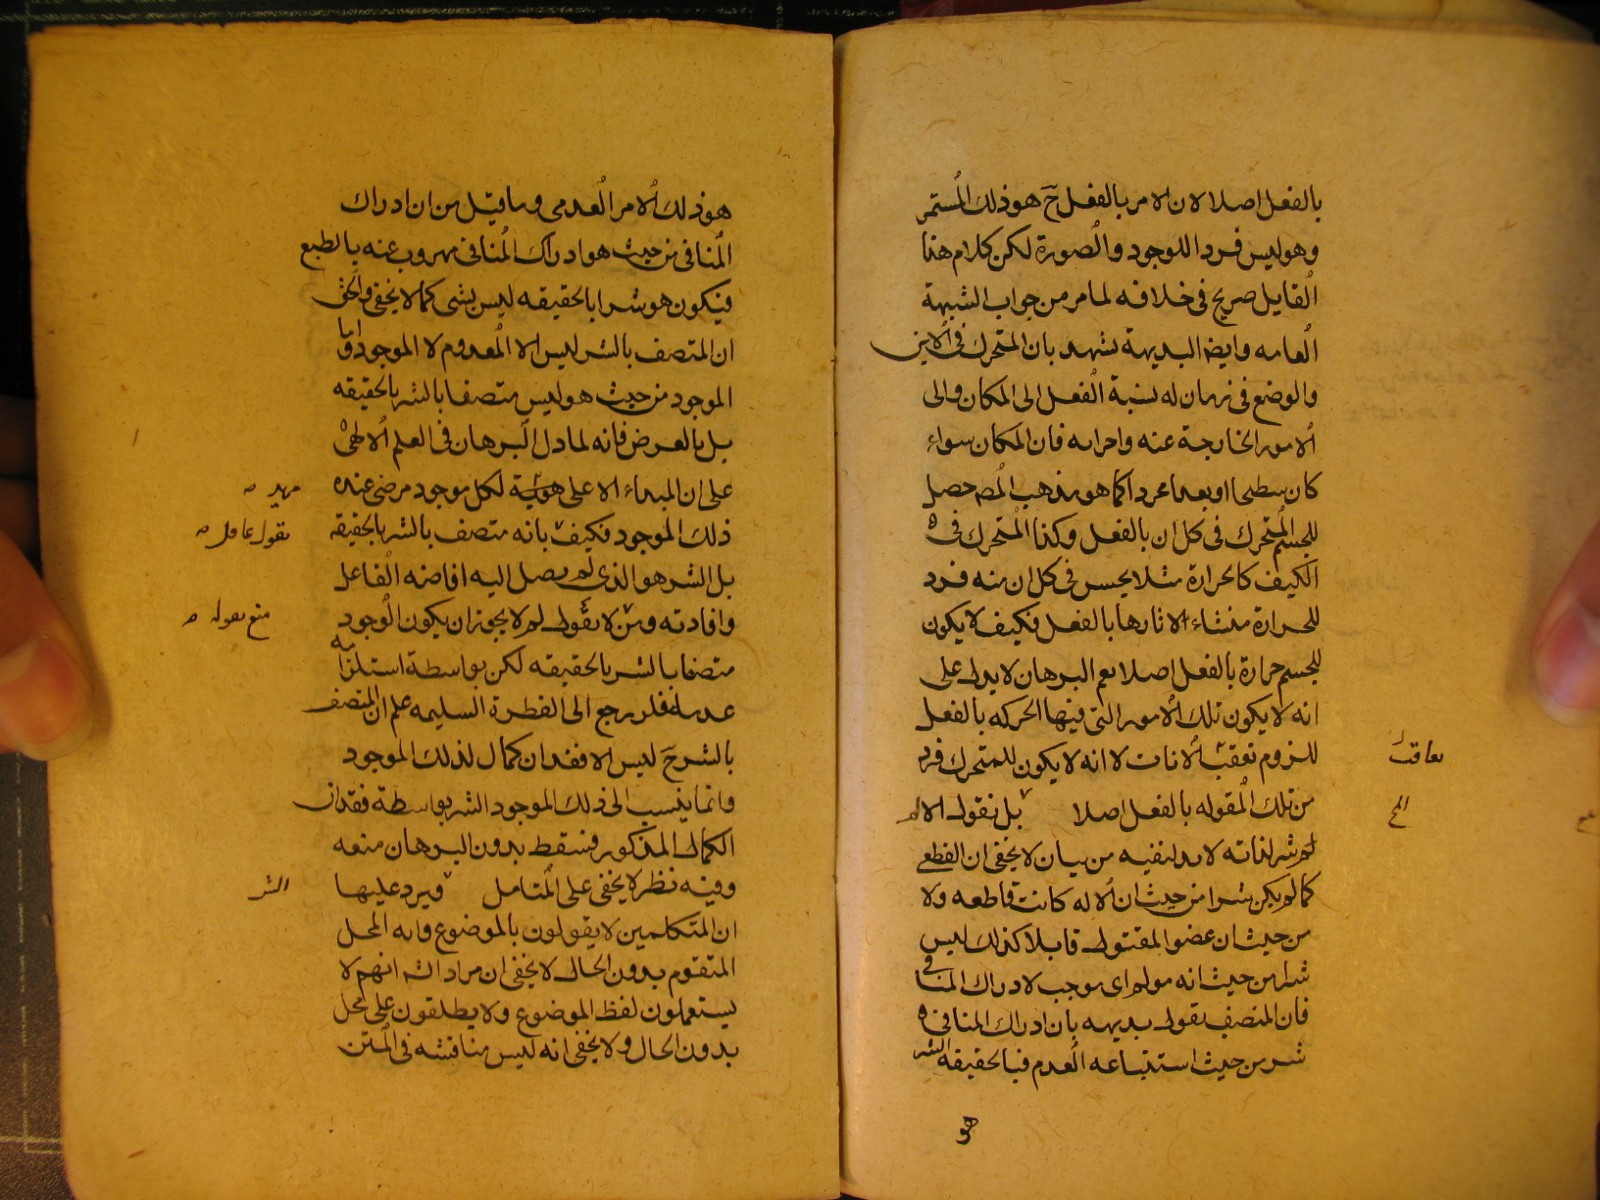 بالفعل اصلا لان الامر بالفعل ح هو ذلك المستمر
وهو ليس فرد اللوجود والصورة لكن كلام هنا
القايل صريح فى خلافه لما مر من جواب الشبهة
العامه وايضا البديهة تشهد بان المتحرك فى الاين
والوضع فى زمان له نسبة الفعل الى المكان والى
الامور الخارجة عنه واجرامه فان المكان سواء
كان سطحا او بعدا مجردا كما هو مذهب المصـ حصل
للجسم المتحرك فى كل ان بالفعل وكذا المتحرك فى
الكيف كالحرارة مثلا يحس فى كل ان منه فرد
للحرارة منشاء لاثارها بالفعل فكيف لا يكون
للجسم حرارة بالفعل اصلا نعم البرهان لا يدل على
انه لا يكون تلك الامور التى فيها الحركه بالفعل
للزوم تعقب الانات لا انه لا يكون للمتحرك فرد
تعاقب
من تلك المقوله بالفعل اصلا بل نقول الالم
الخ
شر لذاته لا بد لنفيه من بيان لا يخفى ان القطع
كما لم يكن شرا من حيث ان الاله كانت قاطعه ولا
من حيث ان عضو المقتول قابلا كذلك ليس
شرا من حيث انه مولم اى موجب لادراك المنافى
فان المنصف يقول بديهه بان ادراك المنافى
شر من حيث استتباعه العدم فبالحقيقه الشر
هو
هو ذلك الامر العدمى وما قيل من ان ادراك
المنافى من حيث هو ادراك المنافى مهروب عنه بالطبع
فيكون هو شرا بالحقيقه ليس بشى كما لا يخفى والحق
ان المتصف بالشر ليس الا المعدوم لا الموجود واما
الموجود من حيث هو ليس متصفا بالشر بالحقيقه
بل بالعرض فانه لما دل البرهان فى العلم الالهى
على ان المبداء الاعلى هويية لكل موجود مرضى عنده
ذلك الموجود فكيف بانه متصف بالشر بالحقيقه
يقول عاقل
بل الشر هو الذى لم يصل اليه افاضه الفاعل
وافادته ومن لا يقول لم لا يجوز ان يكون الوجود
منع بقوله
متصفا بالشر بالحقيقه لكن بواسطة استلزامه
عدما فلو رجع الى الفطرة السليمه علم ان المتصف
بالشر ح ليس الا فقدان كمال لذلك الموجود
وانما ينسب الى ذلك الموجود الشر بواسطة فقدان
الكمال المذكور فسقط بدون البرهان منعه
وفيه نظر لا يخفى على المتامل ويرد عليها
الشر
ان المتكلمين لا يقولون بالموضوع وانه المحل
المتقوم بدون الحال لا يخفى ان مراد الشـ انهم لا
يستعملون لفظ الموضوع ولا يطلقون على محل
بدون الحال ولا يخفى انه ليس مناقشه فى المتن